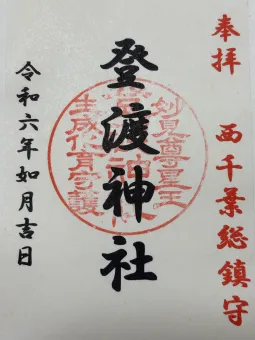 奉拝
西千葉総鎮守
登渡神社
妙見尊星王
生成化育守護
令和六年如月吉日